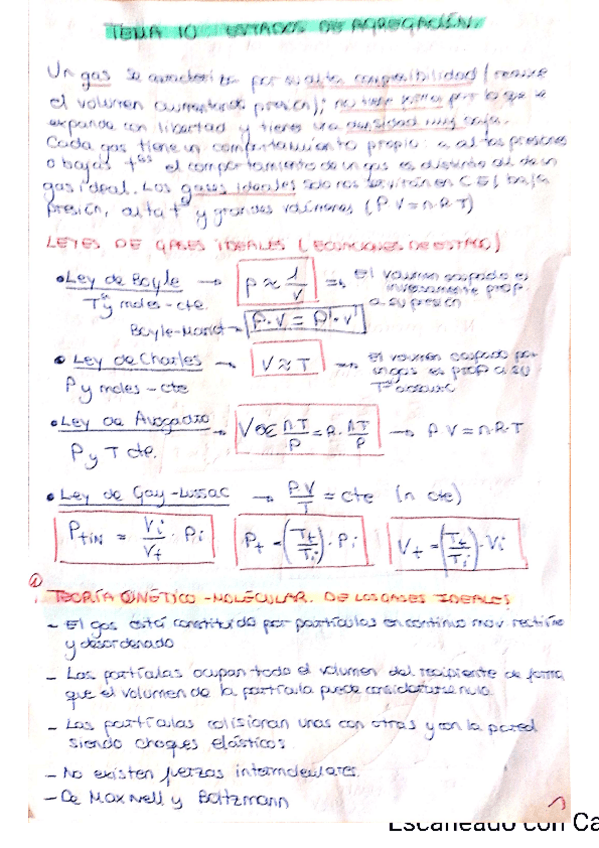 TEMA 10 ESTADOS DE AGREGACIÓN.
Un gas se caracteriza por su alta compresibilidad (reduce
el volumen aumentando presión); no tiene forma por lo que se
expande con libertad y tienen una densidad muy baja.
Cada gas tiene un comportamiento propio: a altas presiones
o bajas tªs el comportamiento de un gas es distinto al de un
gas ideal. Los gases ideales solo nos servirán en C E (baja
presión, alta tª y grandes volúmenes (P V = n·R·T)
LEYES DE GASES IDEALES (ECUACIONES DE ESTADO)
• Ley de Boyle → P ≈ 1/V ⇒ El volumen ocupado es
Tª y moles - cte. inversamente prop.
a su presión
Boyle-Mariot → P·V = P'·V'
• Ley de Charles → V ≈ T → El volumen ocupado por
P y moles - cte un gas es prop a su
Tª absoluta
• Ley de Avogadro → V ∝ nT/P = R·nT/P → P·V = n·R·T
P y T cte.
• Ley de Gay-Lussac → P·V/T = cte (n cte)
Pfin = Vi/Vf · Pi Pf = (Tf/Ti)·Pi Vf = (Tf/Ti)·Vi
① TEORÍA CINÉTICO-MOLECULAR. DE LOS GASES IDEALES
- El gas está constituido por partículas en continuo mov. rectilíneo
y desordenado
- Las partículas ocupan todo el volumen del recipiente de forma
que el volumen de la partícula puede considerarse nula
- Las partículas colisionan unas con otras y con la pared
siendo choques elásticos.
- No existen fuerzas intermoleculares.
- De Maxwell y Boltzmann
1
Escaneado con Ca